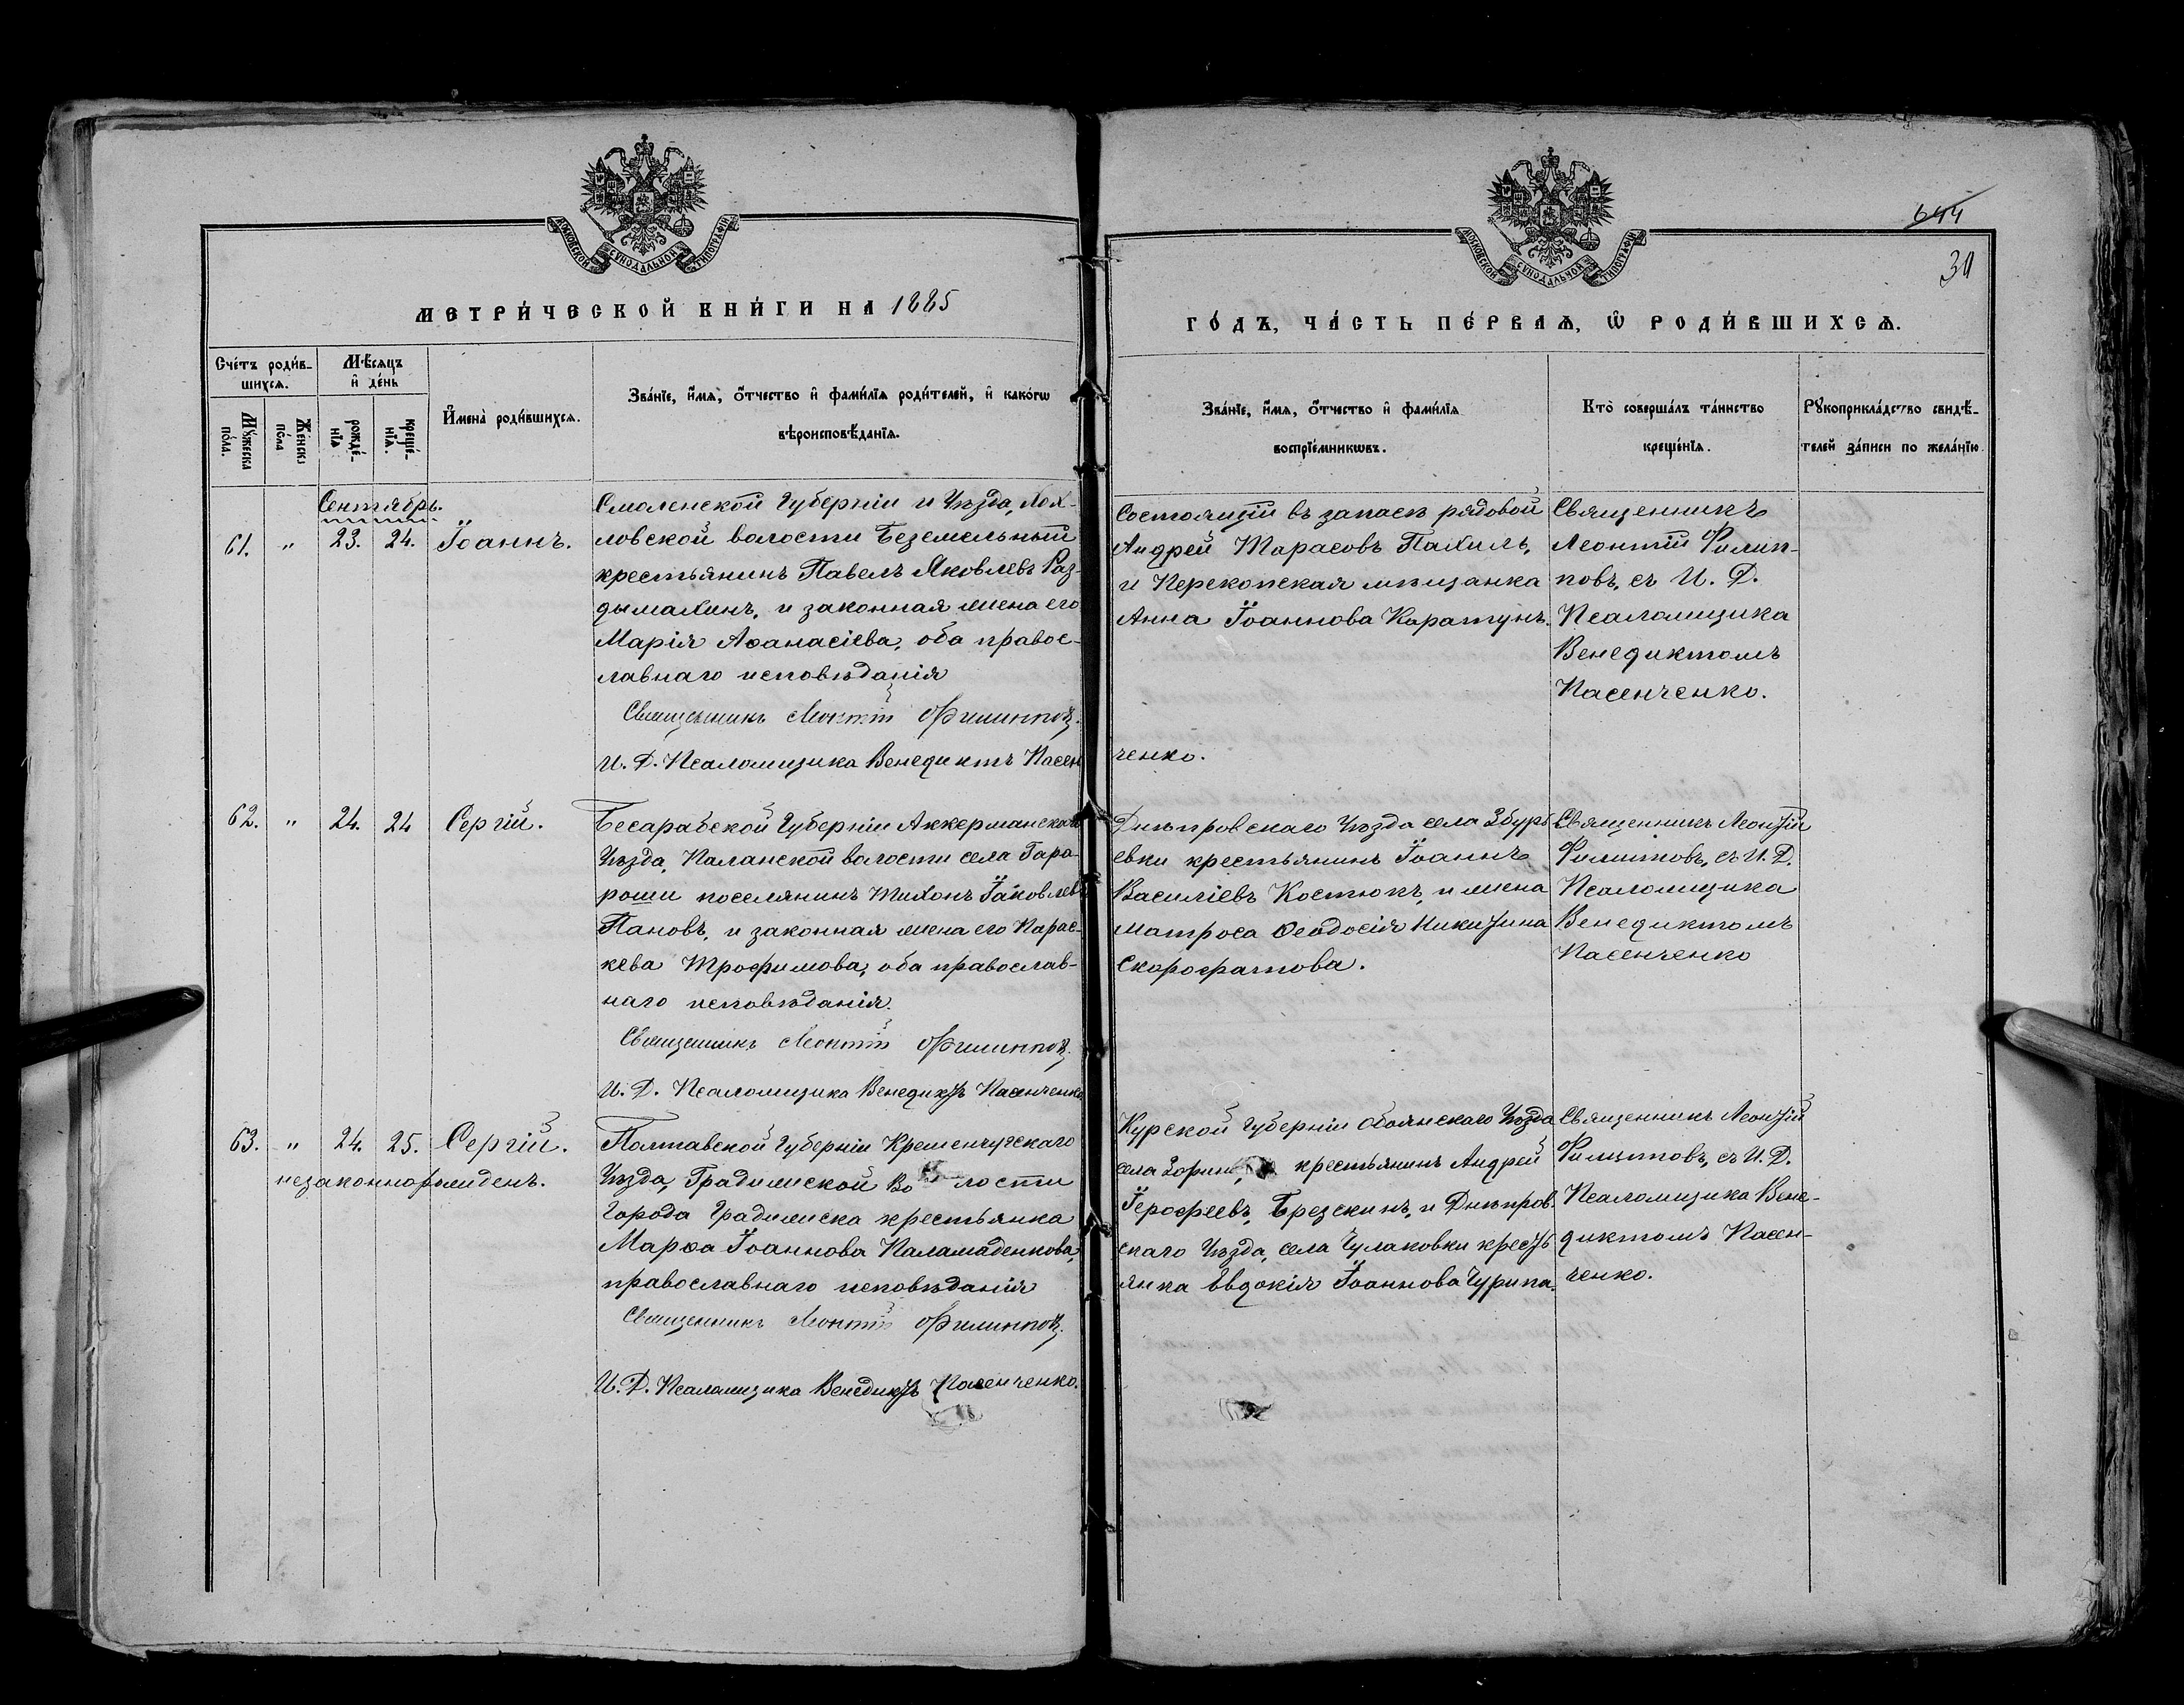 МОСКОВСКОЙ СѴНОДАЛЬНОЙ ТИПОГРАФІИ
МЕТРИ́ЧЕСКОЙ КНИ́ГИ НА 1885
Сче́тъ роди́в-
шихсѧ.
Мѣ́сѧцъ
и҆ де́нь
Мꙋ́жеска
по́ла.
Же́нска
по́ла
рожде́-
нїѧ
креще́-
нїѧ.
И҆мена̀ роди́вшихсѧ.
Зва́нїе, и҆́мѧ, ѻ҆́тчество и҆ фами́лїѧ роди́телей, и҆ како́гѡ
вѣроисповѣ́данїѧ.
Сентябрь.
61. " 23. 24. Іоаннъ.
Смоленской Губерніи и Уѣзда, Хох-
ловской волости Безземельный
крестьянинъ Павелъ Яковлевъ Раз-
дымахинъ, и законная жена его
Марія Аѳанасіева, оба правос-
лавнаго исповѣданія
Священникъ Леонтій Филипповъ.
И. Д. Псаломщика Венедиктъ Пасен
62. " 24. 24 Сергій.
Бесарабской Губерніи Аккерманскаго
Уѣзда, Паланской волости села Гара-
роши поселянинъ Тихонъ Іаковлевъ
Пановъ, и законная жена его Парас-
кева Трофимова, оба православ-
наго исповѣданія.
Священникъ Леонтій Филипповъ.
И. Д. Псаломщика Венедиктъ Пасенченко
63. " 24. 25. Сергій.
незаконнорожденъ.
Полтавской Губерніи Кременчугскаго
Уѣзда, Градижской Волости
Города Градижска крестьянка
Марѳа Іоаннова Каламаденкова,
православнаго исповѣданія
Священникъ Леонтій Филипповъ.
И. Д. Псаломщика Венедиктъ Пасенченко.
644
30
МОСКОВСКОЙ СѴНОДАЛЬНОЙ ТИПОГРАФІИ
ГО́ДЪ, ЧА́СТЬ ПЕ́РВАѦ, Ѡ҆ РОДИ́ВШИХСѦ.
Зва́нїе, и҆́мѧ, ѻ҆́тчество и҆ фами́лїѧ
воспрїе́мникѡвъ.
Кто̀ соверша́лъ та́инство
креще́нїѧ.
Рꙋкоприкла́дство свидѣ́-
телей за́писи по жела́нїю
Состоящій въ запасѣ рядовой
Андрей Тарасовъ Пахиль,
и Перекопская мѣщанка
Анна Іоаннова Каратунъ.
Священникъ
Леонтій Филип-
повъ, съ И. Д.
Псаломщика
Венедиктомъ
Пасенченко.
ченко.
Днѣпровскаго Уѣзда села Збурь
евки крестьянинъ Іоаннъ
Василіевъ Костюкъ, и жена
матроса Ѳеодосія Никитина
Скорофатова.
Священникъ Леонтій
Филиповъ, съ И. Д.
Псаломщика
Венедиктомъ
Пасенченко
Курской Губерніи Обоянскаго Уѣзда
села крестьянинъ Андрей
Іерофеевъ, Брезскинъ, и Днѣпров
скаго Уѣзда, села Чулаковки кресть
янка Евдокія Іоаннова Чурипа.
Священникъ Леонтій
Филиповъ, съ И. Д.
Псаломщика Вене-
диктомъ Пасен-
ченко.